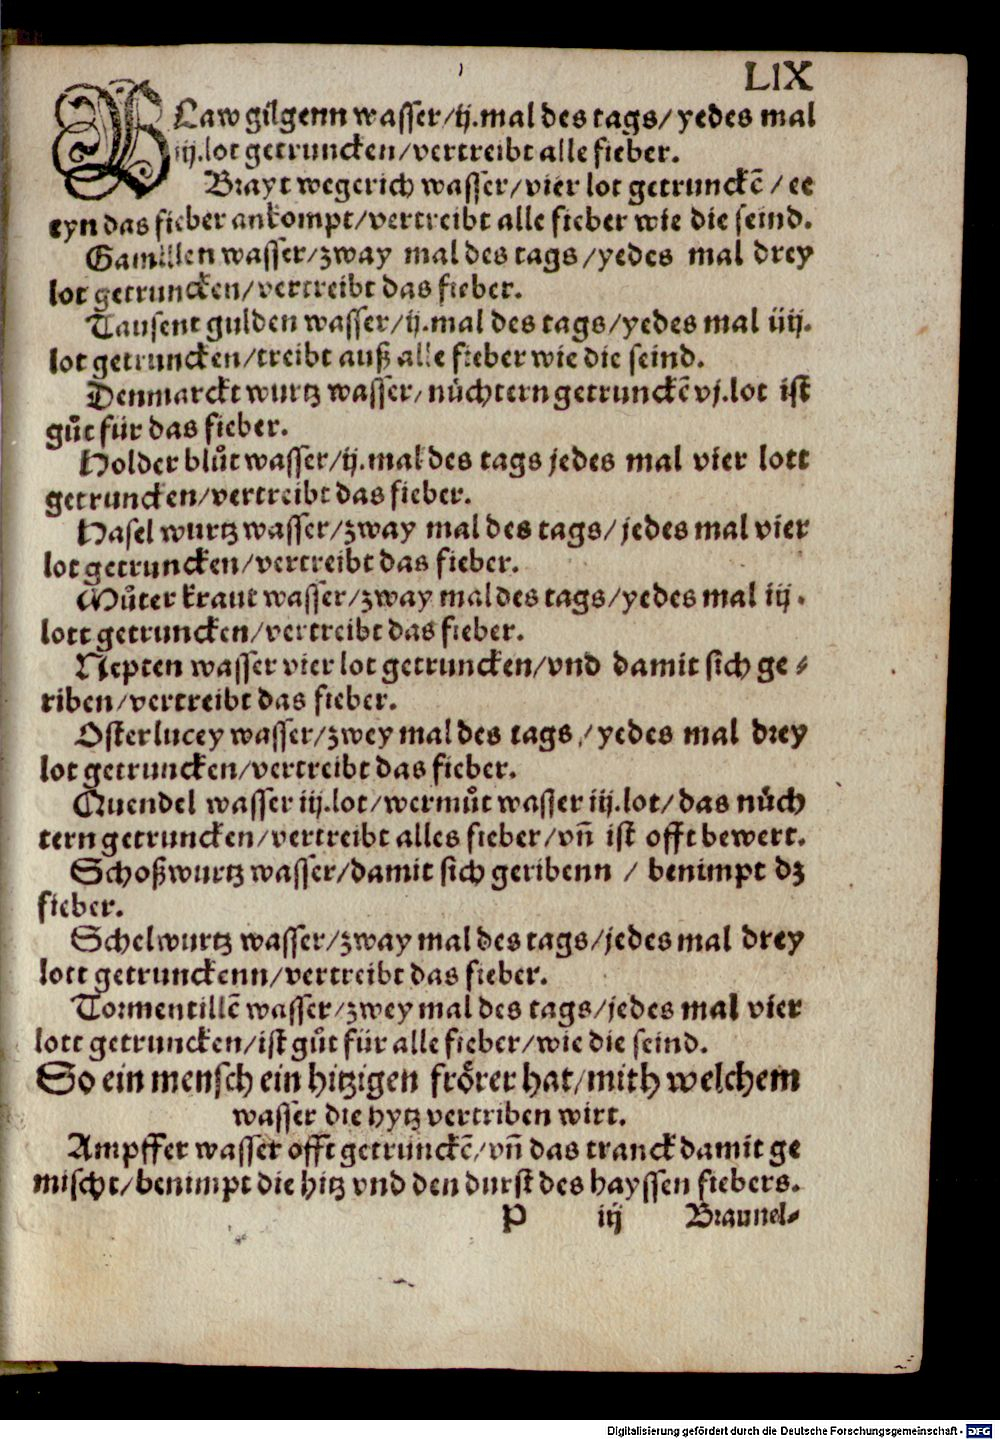 LIX
BLaw gilgenn wasser/ij.mal des tags/ yedes mal
iij.lot getruncken/vertreibt alle fieber.
Brayt wegerich wasser/vier lot getrunckē / ee
eyn das fieber ankompt/vertreibt alle fieber wie die seind.
Gamillen wasser/zway mal des tags/yedes mal drey
lot getruncken/vertreibt das fieber.
Tausent gulden wasser/ij.mal des tags/yedes mal iiij.
lot getruncken/treibt auß alle fieber wie die seind.
Denmarckt wurtz wasser/nuͤchtern getrunckē vj.lot ist
guͦt für das fieber.
Holder bluͦt wasser/ij.mal des tags jedes mal vier lott
getruncken/vertreibt das fieber.
Hasel wurtz wasser/zway mal des tags/jedes mal vier
lot getruncken/vertreibt das fieber.
Muͦter kraut wasser/zway mal des tags/yedes mal iij.
lott getruncken/vertreibt das fieber.
Nepten wasser vier lot getruncken/vnd damit sich ge⸗
riben/vertreibt das fieber.
Osterlucey wasser/zwey mal des tags/yedes mal drey
lot getruncken/vertreibt das fieber.
Quendel wasser iij.lot/wermuͦt wasser iij.lot/das nuͤch
tern getruncken/vertreibt alles fieber/vn̄ ist offt bewert.
Schoßwurtz wasser/damit sich geribenn / benimpt dz
fieber.
Schelwurtz wasser/zway mal des tags/jedes mal drey
lott getrunckenn/vertreibt das fieber.
Tormentillē wasser/zwey mal des tags/jedes mal vier
lott getruncken/ist guͦt für alle fieber/wie die seind.
So ein mensch ein hitzigen froͤrer hat/mith welchem
wasser die hytz vertriben wirt.
Ampffer wasser offt getrunckē/vn̄ das tranck damit ge
mischt/benimpt die hitz vnd den durst des hayssen fiebers.
P iij Braunel⸗
Digitalisierung gefördert durch die Deutsche Forschungsgemeinschaft - DFG